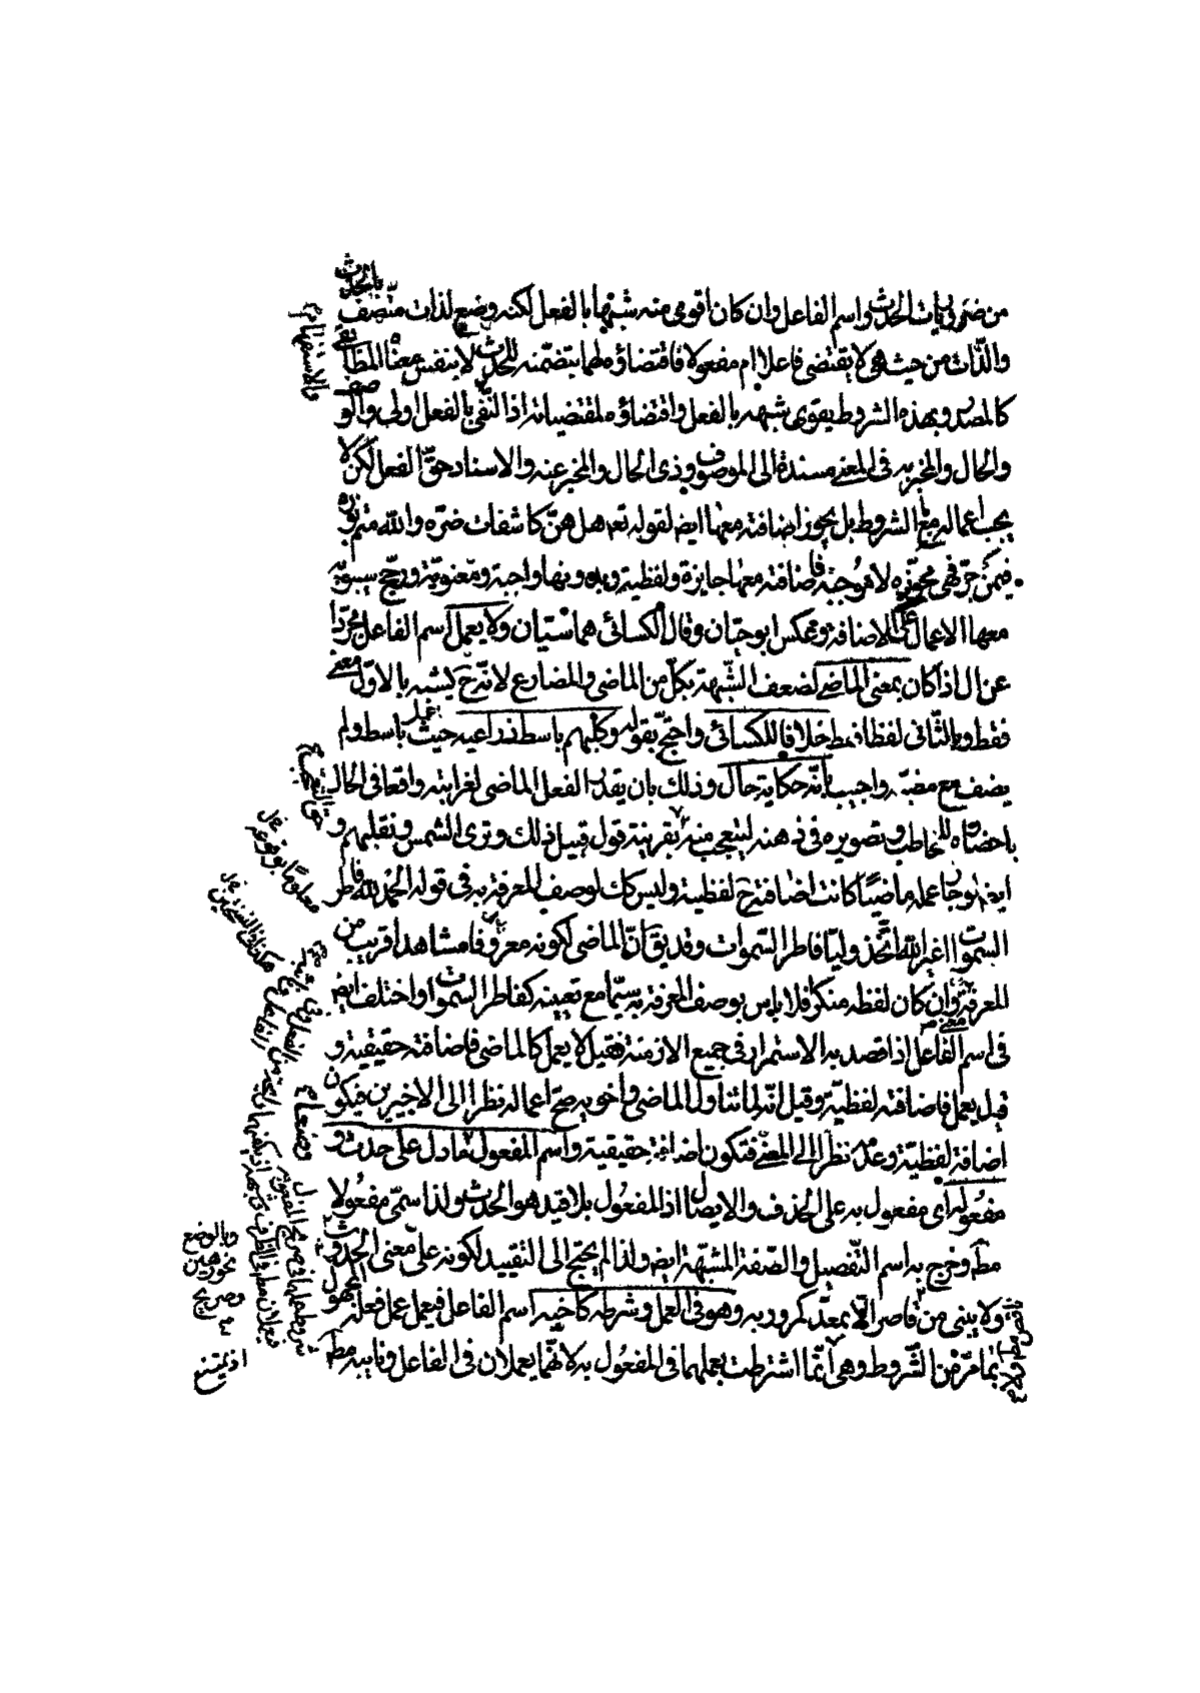 من ضروريات الحدث واسم الفاعل وان كان اقوى منه شبها بالفعل لكنه وضع لذات متّصف بالحدث
والذّات من حيث هى لا يقتضى فاعلا ام مفعولا فاقتضاؤه لهما بتضمّنه للحدث لا بنفس معناه المطابقى
كالمصدر وبهذه الشروط يقوى شبهه بالفعل واقتضاؤه لمقتضياته اذ النّفى بالفعل اولى والوصف
والحال والمخبر به فى المعنى مسندة الى الموصوف وذى الحال والمخبر عنه والاسناد حقّ الفعل لكن لا
يجب اعماله مع الشروط بل يجوز اضافته معها ايض لقوله تعه هل هنّ كاشفات ضرّه والله متم نوره
فيمن جرّ فهى مجوّزه لا موجبة فاضافته معها جايزة ولفظية وبدونها واجبة ومعنوية ورجّح سيبويه
معها الاعمال على الاضافة وعكس ابو حيّان وقال الكسائى هما سيّان ولا يعمل اسم الفاعل مجرّدا
عن ال اذا كان بمعنى الماضى لضعف الشّبهة بكلّ من الماضى والمضارع لانّه ح يشبه بالاوّل معنى
فقط وبالثّانى لفظا فقط خلافا للكسائى واحتجّ بقوله وكلبهم باسط ذراعيه حيث عمل باسط ولم
يضف مع مضيّه واجيب بانّه حكاية حال وذلك بان يقدر الفعل الماضى لغرابته واقعا فى الحال
باحضاره للمخاطب وتصويره فى ذهنه ليتعجب منه بقرينة قول قبيل ذلك وترى الشمس ونقلبهم و
ايض لو جاز عمله ماضيا كانت اضافته ح لفظية وليس كك لوصف المعرفة به فى قوله الحمد لله فاطر
السموات اغير الله اتّخذ وليّا فاطر السّموات وقد يق انّ الماضى لكونه معروفا مشاهدا قريب من
المعرفة وان كان لفظه منكرا فلا باس بوصف المعرفة به سيّما مع تعيينه كفاطر السموات واختلف ايض
فى اسم الفاعل اذا قصد به الاستمرار فى جميع الازمنة فقيل لا يعمل كالماضى فاضافته حقيقية و
قيل يعمل فاضافته لفظيّة وقيل انّه لما تناول الماضى واخويه صحّ اعماله نظرا الى الاخيرين فيكون
اضافة لفظيّة وعدمه نظرا الى المعنى فتكون اضافة حقيقية واسم المفعول ما دل على حدث و
مفعوله اى مفعول به على الحذف والايصال اذ المفعول بلا قيد هو الحدث ولذا سمّى مفعولا
مط وخرج به اسم التّفضيل والصّفة المشبّهة ايض ولذا لم يحتج الى التقييد لكونه على معنى الحدوث
ولا يبنى من قاصر الّا بمعدّ كمرور به وهو فى العمل وشرطه كاخيه اسم الفاعل فيعمل عمل فعله المجهول
بما مرّ من الشّروط وهى انّما اشترطت بعملهما فى المفعول به لانّهما يعملان فى الفاعل ونايبه مط
والاستفهام
وبالوضع
نحو هين
وصريح
اذ يمتنع